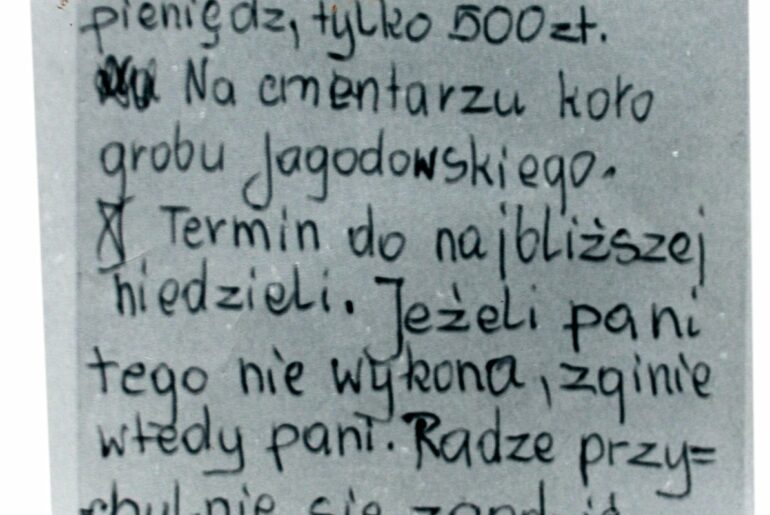 pieniędz, tylko 500zt.
Na cmentarzu koło
grobu Jagodowskiego.
Termin do najbliższej
niedzieli. Jeżeli pani
tego nie wykona, zginie
wtedy pani. Radze przy=
chylnie się